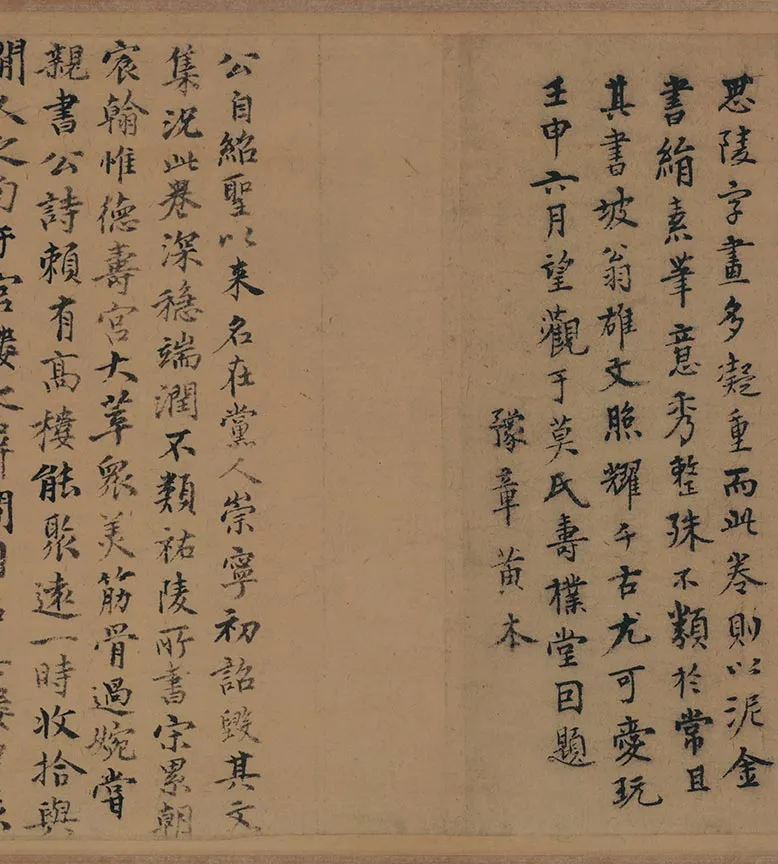 思陵字畫多凝重而此卷則以泥金
書絹素筆意秀整殊不類於常且
其書坡翁雄文照耀千古尤可愛玩
壬申六月望觀于莫氏壽樸堂因題
豫章黃本
公自紹聖以来名在黨人崇寧初詔毀其文
集況此卷深穩端潤不類祐陵所書宋累朝
宸翰惟德壽宮大草眾美筋骨過婉嘗
親書公詩賴有高樓能聚遠一時收拾與
閒人之句于宮樓之